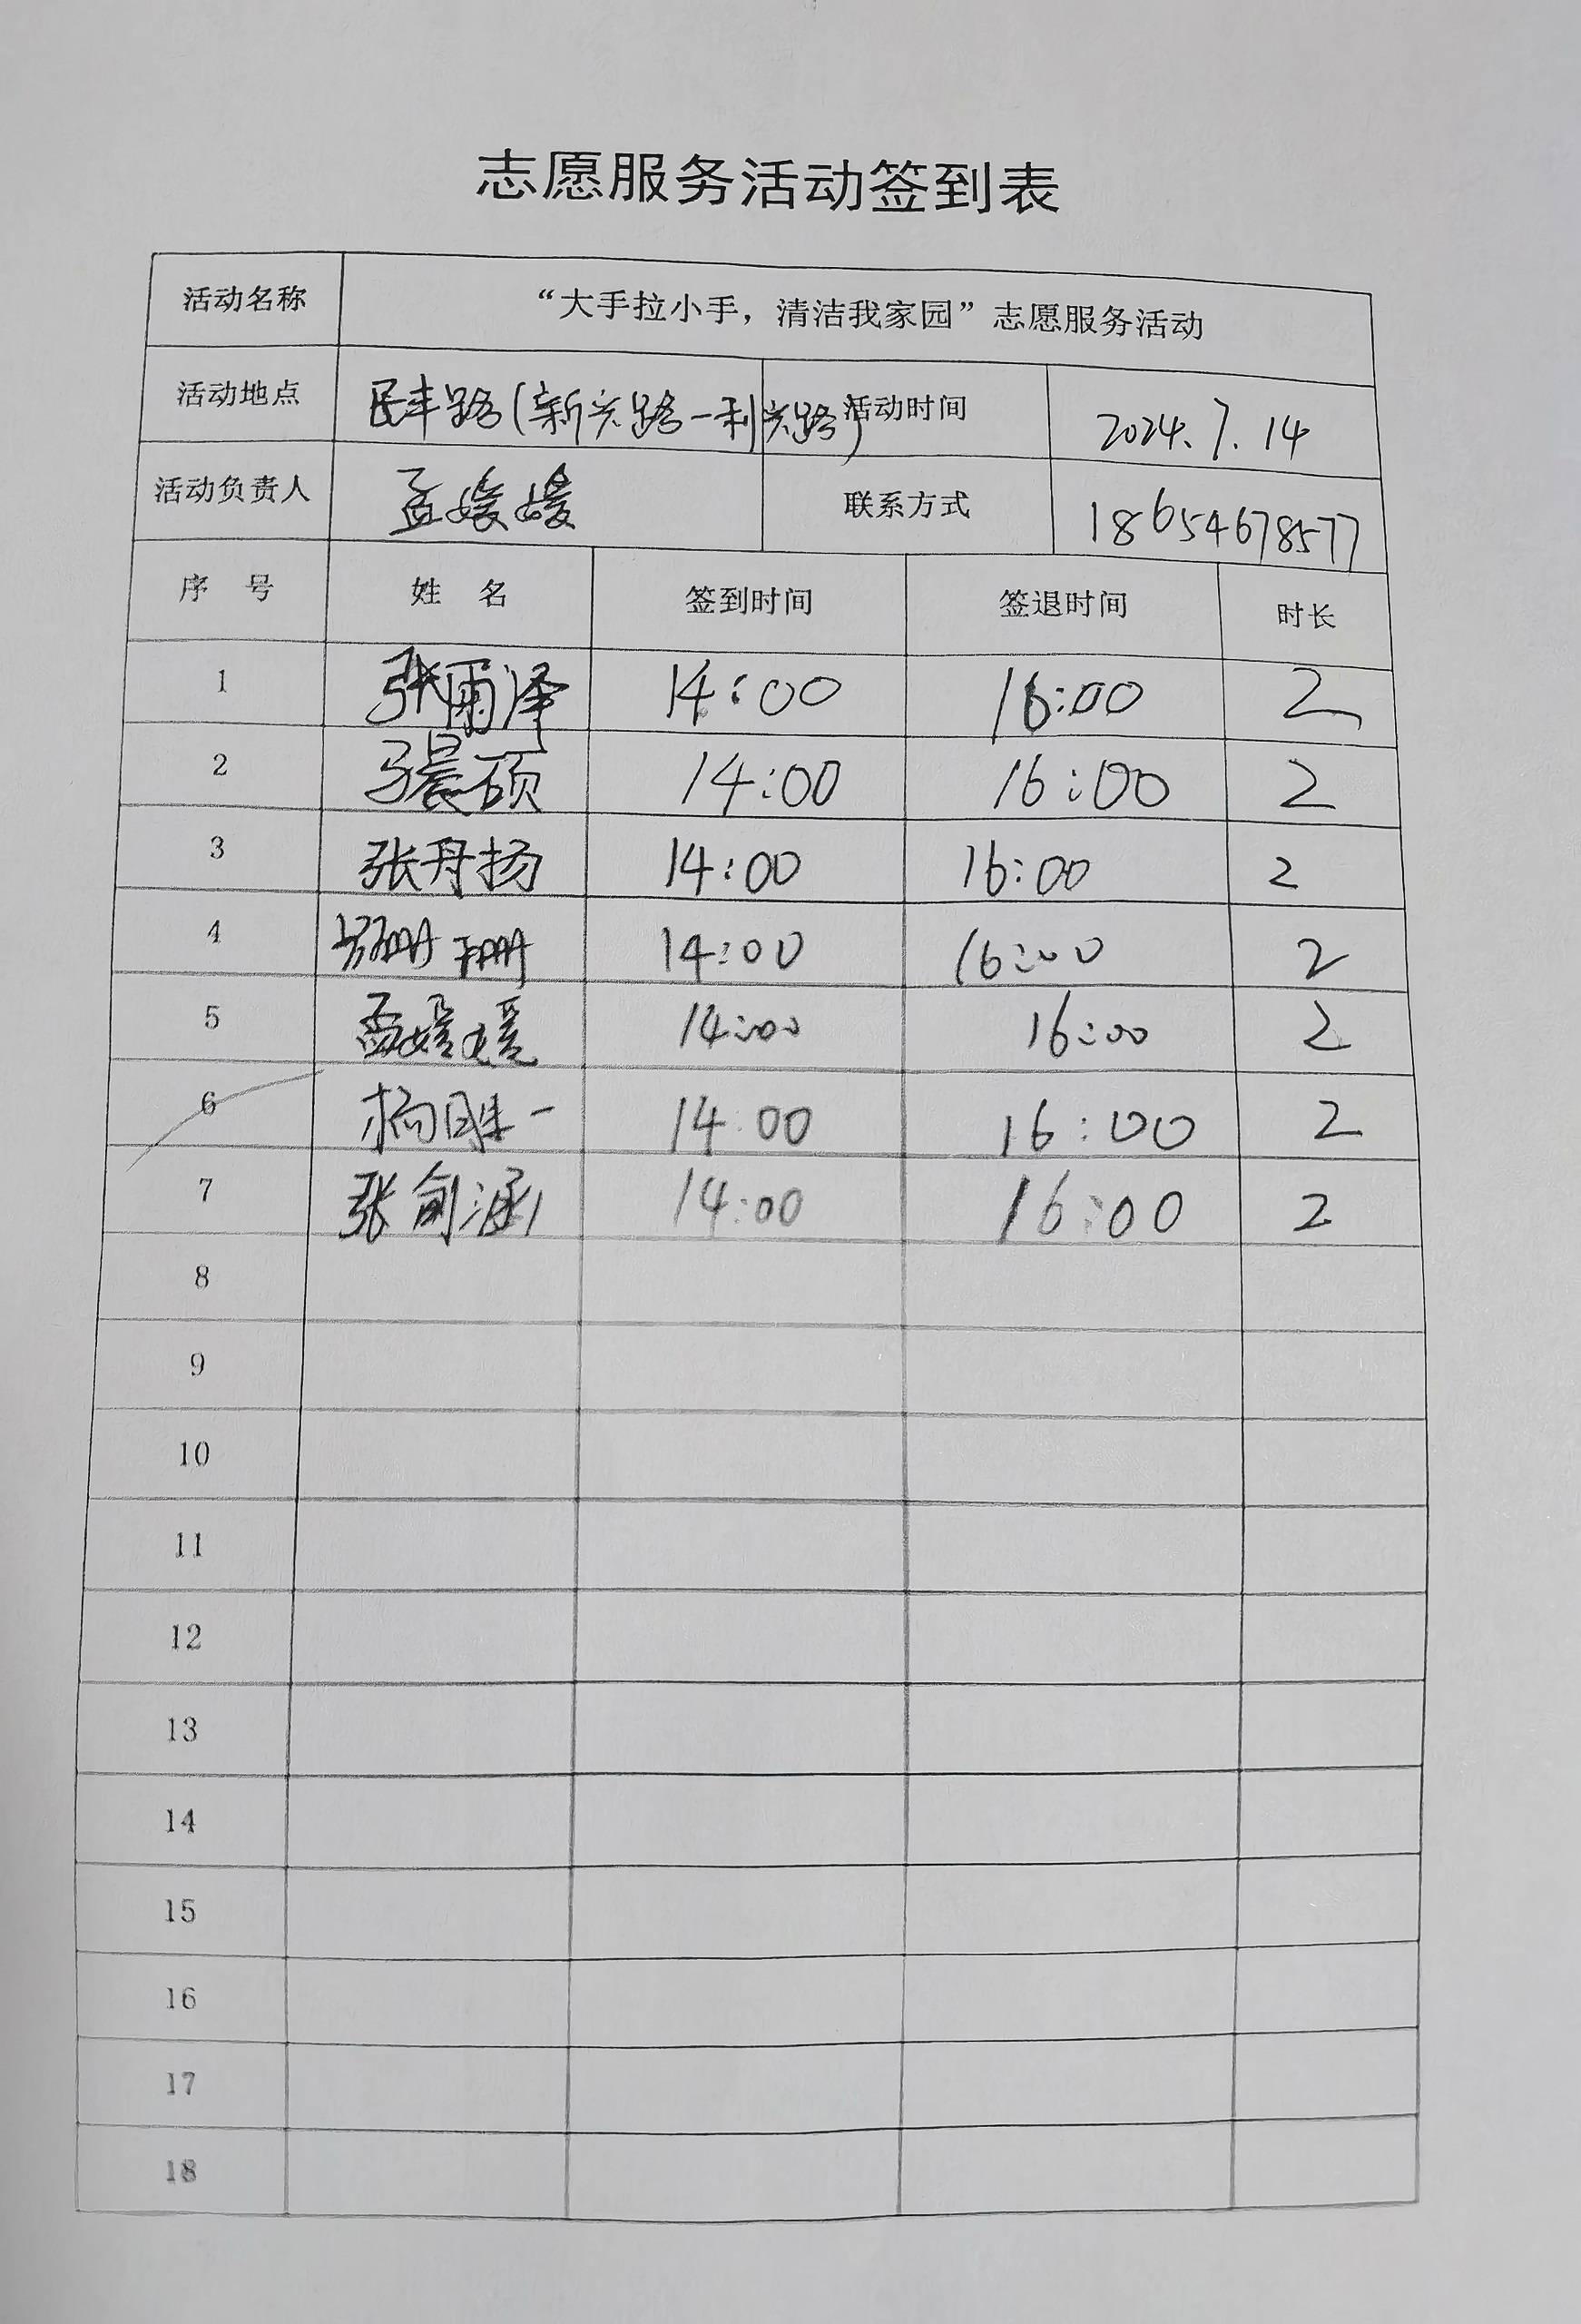 志愿服务活动签到表
活动名称 “大手拉小手，清洁我家园”志愿服务活动
活动地点 民丰路(新兴路一利兴路) 活动时间 2024.7.14
活动负责人 孟媛媛 联系方式 18654678577
序 号 姓 名 签到时间 签退时间 时长
1 张雨泽 14:00 16:00 2
2 马晨硕 14:00 16:00 2
3 张丹扬 14:00 16:00 2
4 14:00 16:00 2
5 孟媛媛 14:00 16:00 2
6 杨胜一 14:00 16:00 2
7 张俞涵 14:00 16:00 2
8
9
10
11
12
13
14
15
16
17
18